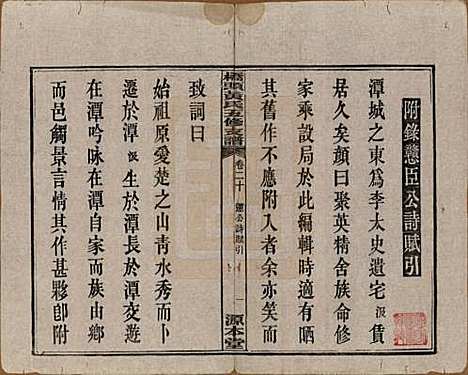 附錄戀臣公詩賦引
潭城之東為李太史遺宅汲賃
居久矣顏曰聚英精舍族命修
家乘設局於此編輯時適有晒
其舊作不應附入者余亦云然
橋頭黃氏五修支譜 卷二十 公詩賦引 一 源本堂
致詞曰
始祖原愛楚之山青水秀而卜
遷於潭汲生於潭長於潭交遊
在潭吟咏在潭自家而族由鄉
而邑觸景言情其作甚夥即附